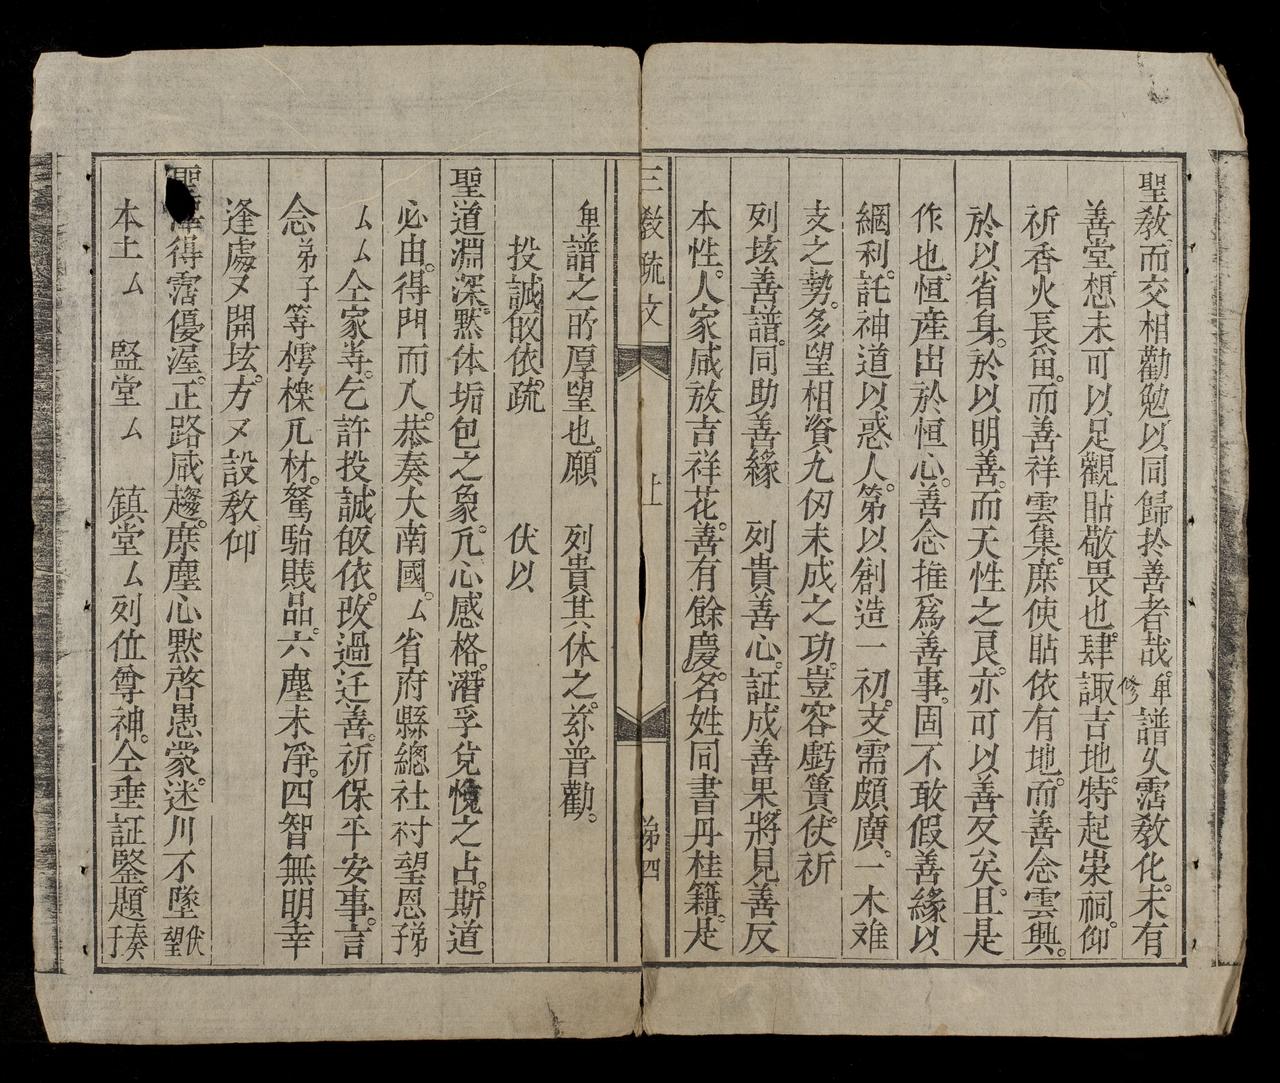 聖教而交相勸勉以同歸於善者哉。卑譜久霑教化。未有
修
善堂。想未可以足觀貼敬畏也。肆諏吉地。特起崇祠。仰
祈香火長畱。而善祥雲集。庶使貼依有地。而善念雲興。
於以省身。於以明善。而天性之良。亦可以善反矣。且是
作也。恒産出於恒心。善念推爲善事。固不敢假善緣以
網利。託神道以惑人。第以創造一初。支需頗廣。一木难
支之勢。多望相資。九仞未成之功。豈容虧簣。伏祈
列垓善譜。同助善緣 列貴善心。証成善果。將見善反
本性。人家咸放吉祥花。善有餘慶。名姓同書丹桂籍。是
三教䟽文 上 第四
卑譜之所厚望也。願 列貴其体之。茲普勸。
投誠皈依䟽 伏以
聖道淵深。黙体垢包之象。亢心感格。潛孚兌悅之占。斯道
必由。得門而入。恭奏大南國。厶省府縣總社村望恩弟子
厶厶全家等。乞許投誠皈依。改過迁善。祈保平安事。言
念弟子等樗櫟凡材。駑駘賤品。六塵未凈。四智無明。幸
逢處又開垓。方又設教仰
聖澤得霑優渥。正路咸趨。庶塵心黙啓愚蒙。迷川不墜伏望
本土厶 監堂厶 鎮堂厶列位尊神。仝垂証鑒。題奏于